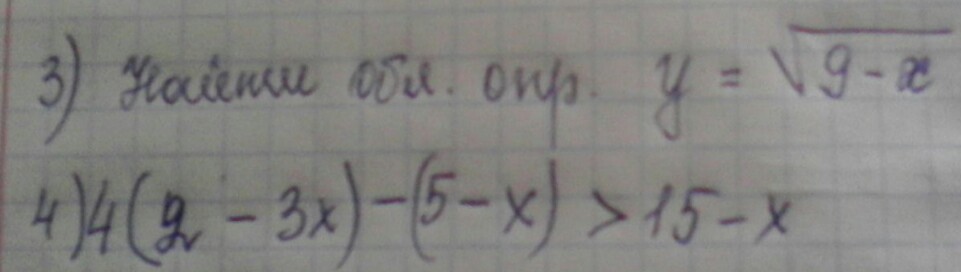 3) Найти обл. опр. y = √9-x
4) 4(2 - 3x) - (5 - x) > 15 - x